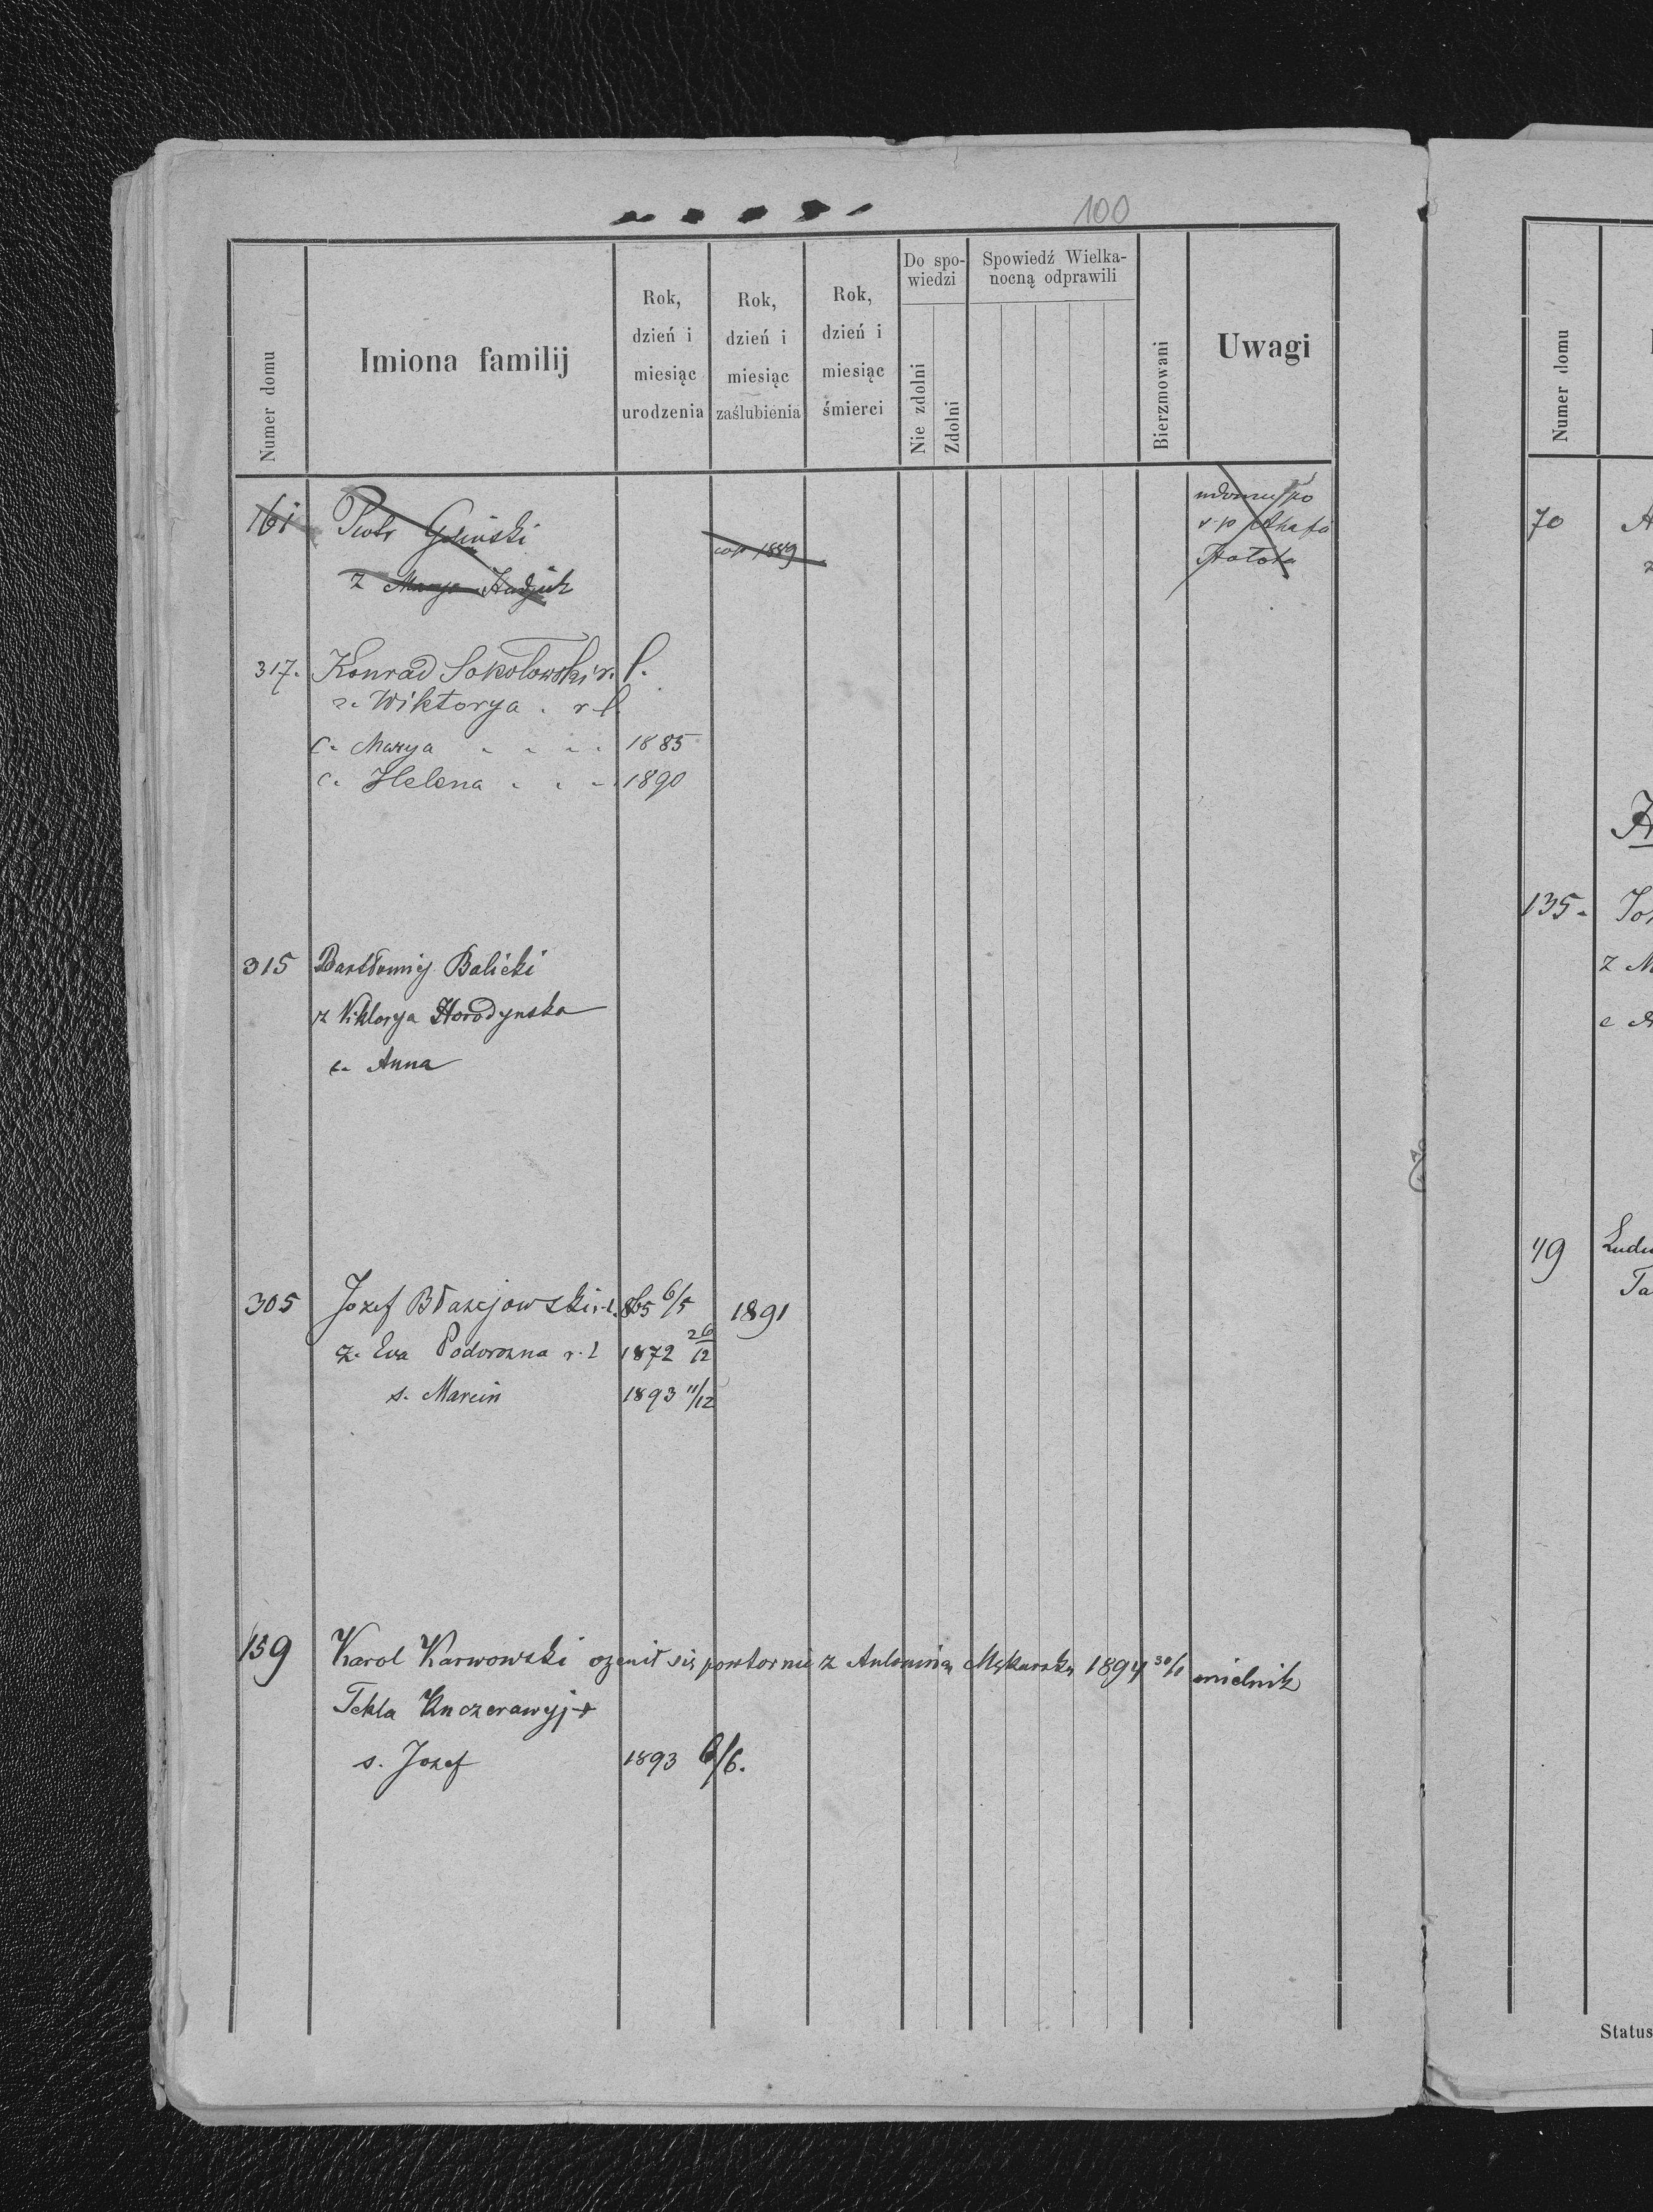 100
Numer domu
Imiona familij
Rok, dzień i miesiąc urodzenia
Rok, dzień i miesiąc zaślubienia
Rok, dzień i miesiąc śmierci
Do spo-
wiedzi
Nie zdolni
Zdolni
Spowiedź Wielka-
nocną odprawili
Bierzmowani
Uwagi
161 Piotr
z Marya
1889
317. Konrad Sokołowski r. l.
ż. Wiktorya . r. l.
c. Marya . . . . 1885
c. Helena . . . 1890
315 Bartłomiej Balicki
ż Viktorya Horodynska
c. Anna
305 Jozef Błażejowski r. l. 865 6/5 1891
ż. Eva Podorozna r. l 1872 26/12
s. Marcin 1893 11/12
159 Karol Karwowski ożenił się powtornie z Antoniną 1894 30/1 mielnik
Tekla Kuczerawyj +
s. Jozef 1893 6/6.
Numer domu
70
135.
z
c
49
Status